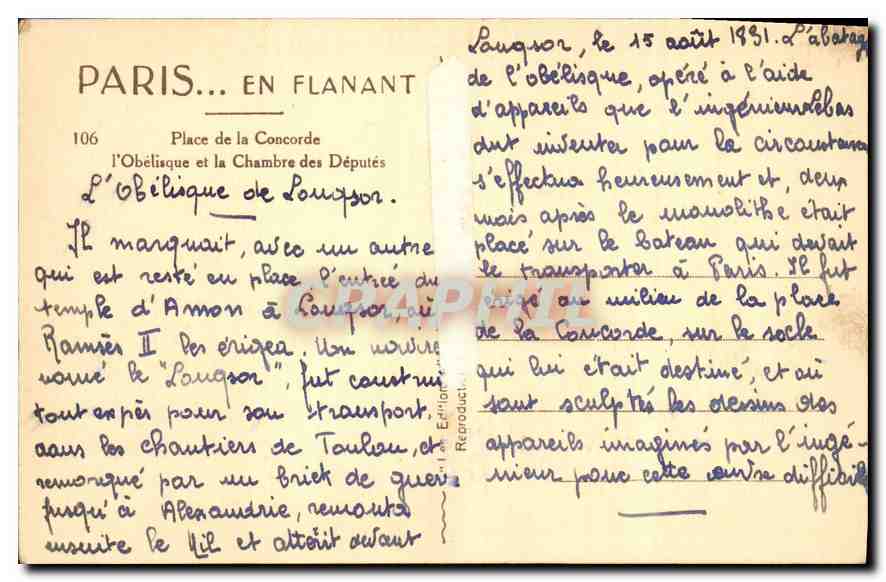 PARIS... EN FLANANT
106 Place de la Concorde
l'Obélisque et la Chambre des Députés
L'Obélisque de Louqsor.
Il marquait, avec un autre
qui est resté en place l'entrée du
temple d'Amon à Louqsor, où
Ramsès II les érigea. Un navire
nommé le "Louqsor", fut construi
tout exprès pour son transport.
dans les chantiers de Toulon, et
remorqué par un brick de guer
jusqu'à Alexandrie, remonta
ensuite le Nil et atterit devant
Louqsor, le 15 août 1831. L'abatag
de l'obélisque, opéré à l'aide
d'appareils que l'ingénieur Lebas
dut inventer pour la circonstance
s'effectua heureusement et, deux
mois après le monolithe était
placé sur le bateau qui devait
le transporter à Paris. Il fut
érigé au milieu de la place
de la Concorde, sur le socle
qui lui était destiné, et où
sont sculptés les dessins des
appareils imaginés par l'ingé-
nieur pour cette œuvre difficile
Edition
Reproduct
CPAPHIL